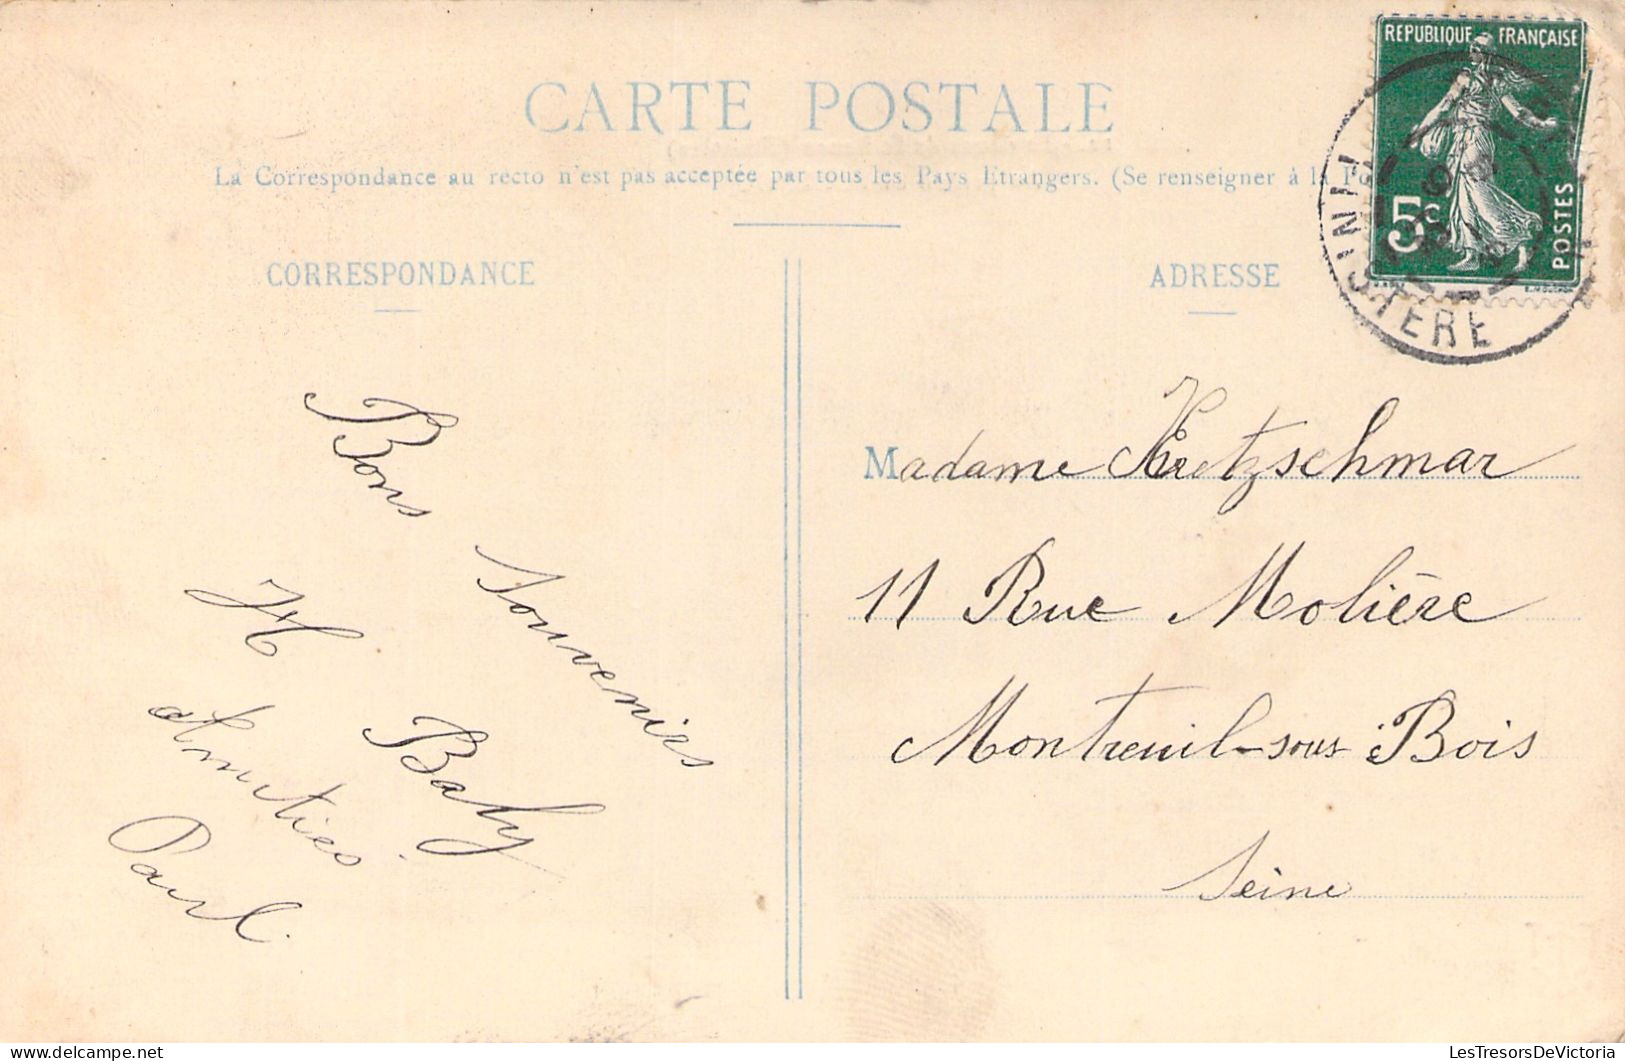 CARTE POSTALE
La Correspondance au recto n'est pas acceptée par tous les Pays Etrangers. (Se renseigner à la Po
CORRESPONDANCE
ADRESSE
REPUBLIQUE FRANÇAISE
5c
POSTES
FINISTERE
Bons
Souvenirs
H Baly
Amitiés
Paul.
Madame Kretzschmar
11 Rue Molière
Montreuil-sous-Bois
Seine
LesTresorsDeVictoria